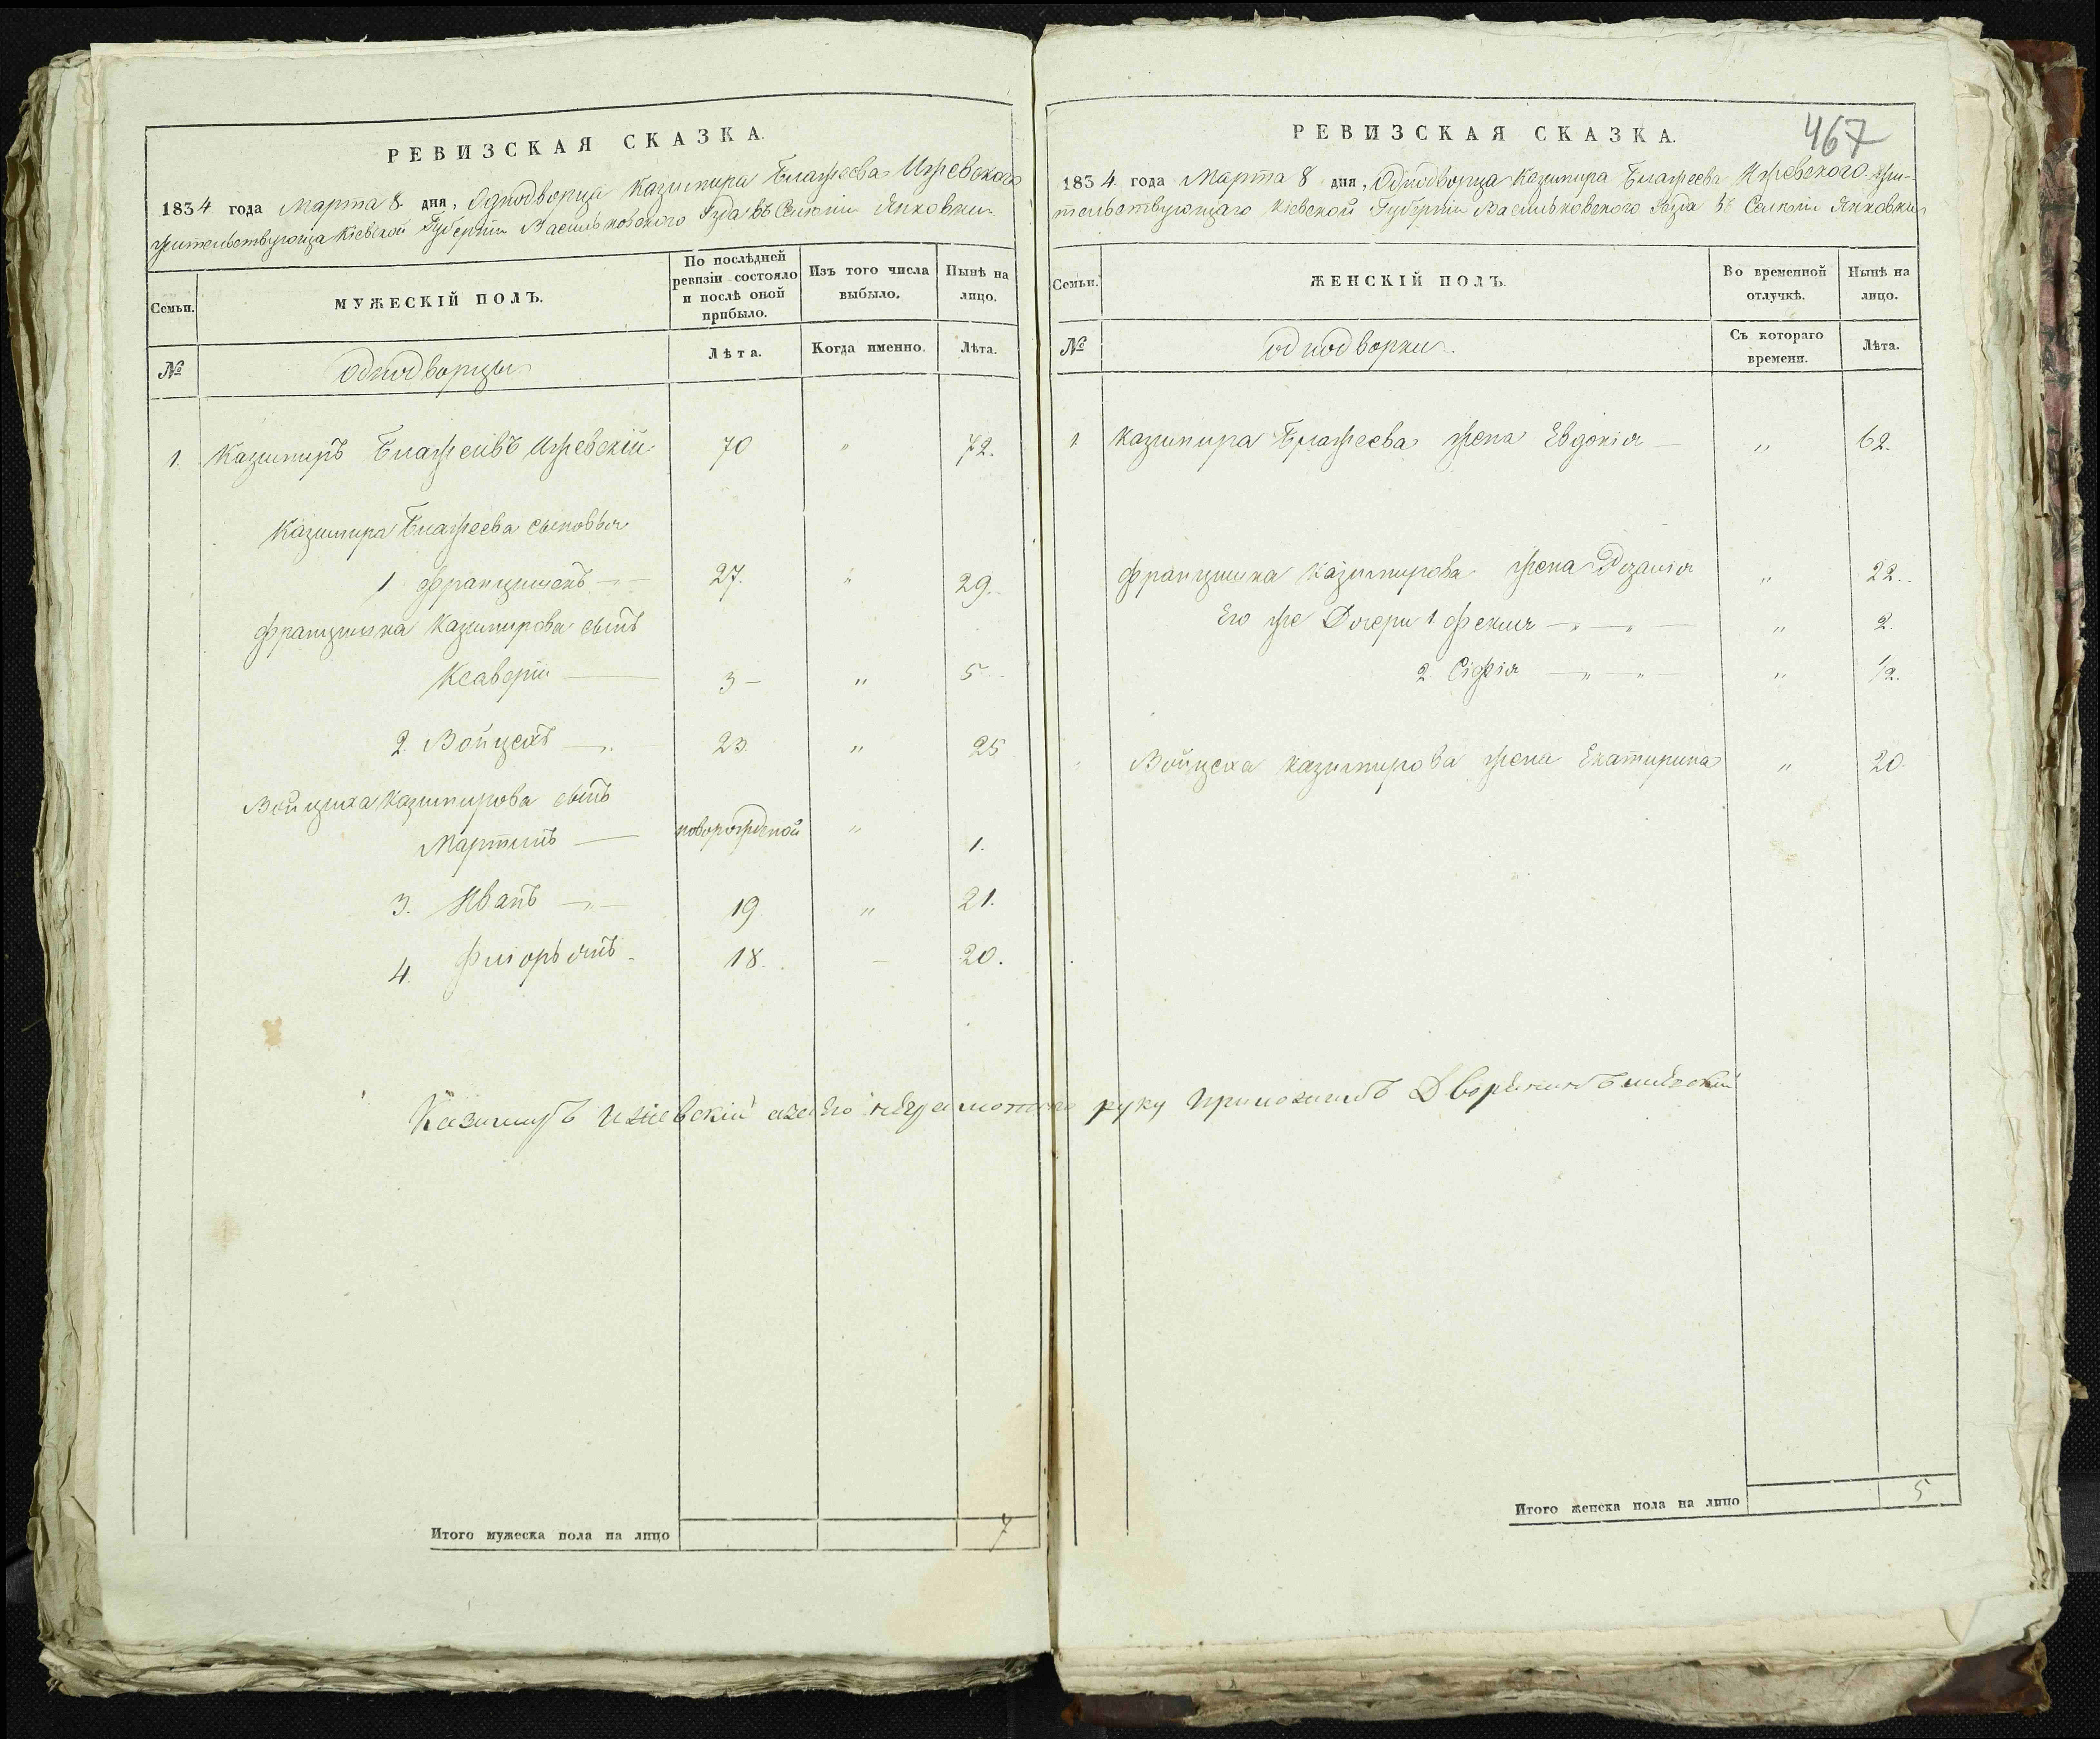 РЕВИЗСКАЯ СКАЗКА.
1834 года Марта 8 дня, Однодворца Казимира Блажеева Ижевскаго
жительствующа Кіевской Губерніи Васильковского уезда въ Селеніи Янковки
Семьи.
МУЖЕСКІЙ ПОЛЪ.
По послѣдней ревизіи состояло и послѣ оной прибыло.
Изъ того числа выбыло.
Нынѣ на лицо.
№
Однодворцы
Лѣта.
Когда именно.
Лѣта.
1. Казимиръ Блажеивъ Ижевскій 70 " 72.
Казимира Блажеева сыновья
1 Францишекъ 27. " 29.
Францишка Казимирова сынъ
Ксаверіи 3 " 5
2. Войцехъ 23 " 25
Войциха Казимирова сынъ
Мартинъ новорожденой " 1.
3. Иванъ 19 " 21.
4. Флiорьянъ 18. — 20.
Итого мужеска пола на лицо 7
467
РЕВИЗСКАЯ СКАЗКА.
1834. года Марта 8 дня, Однодворца Казимира Блажеева Ижевского жи-
тельствующаго Кіевской Губерніи Васильковского уезда въ Селеніи Янковки
Семьи.
ЖЕНСКІЙ ПОЛЪ.
Во временной отлучкѣ.
Нынѣ на лицо.
№
однодворки
Съ котораго времени.
Лѣта.
1 Казимира Блажеева жена Евдокія " 62.
Францишка Казимирова жена Розалія " 22.
Его же Дочери 1 Фекля " 2.
2 Софія " 1/2.
Войцеха Казимирова жена Екатирина " 20.
Итого женска пола на лицо 5
Казимиръ Ижевскій а за Его неграмотного руку приложилъ Дворянинъ